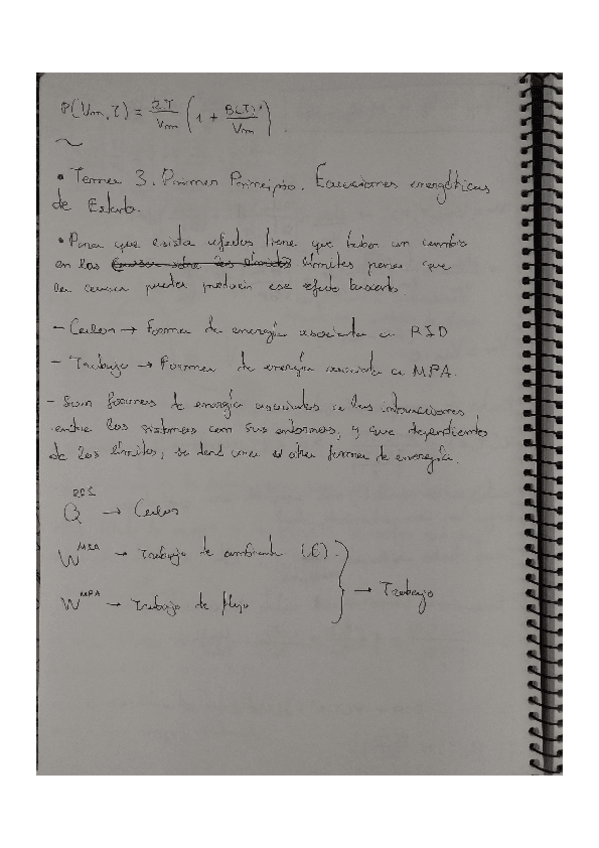 P(Vm, T) = RT/Vm (1 + B(T)/Vm)
• Tema 3. Primer Principio. Ecuaciones energéticas
de Estado.
• Para que exista efectos tiene que haber un cambio
en los límites para que
la causa pueda producir ese efecto buscado
- Calor → Forma de energía asociada a
- Trabajo → Forma de energía asociada a MPA.
- Son formas de energía asociadas a las interacciones
entre los sistemas con sus entornos, y que dependientes
de los límites, se dará una u otra forma de energía.
Q → Calor
W → Trabajo de
W MPA → Trabajo de flujo
→ Trabajo